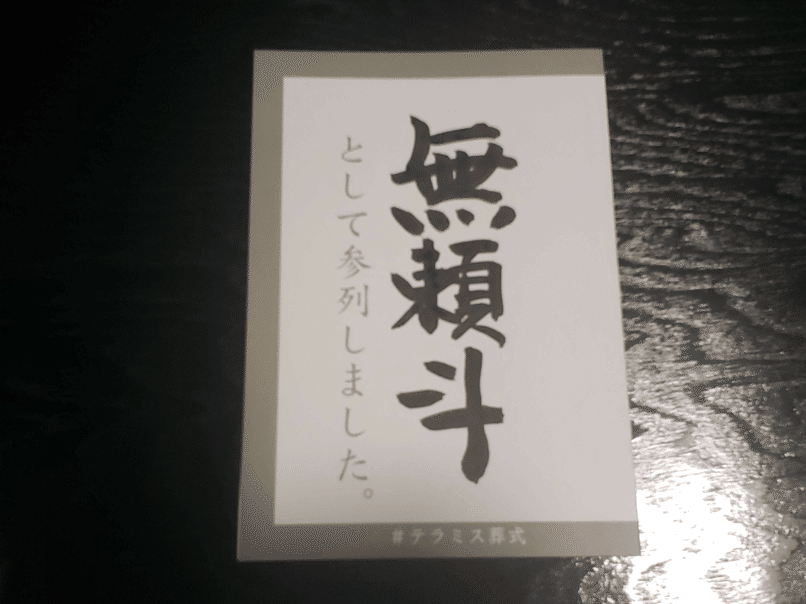 無頼斗
として参列しました。
#テラミス葬式